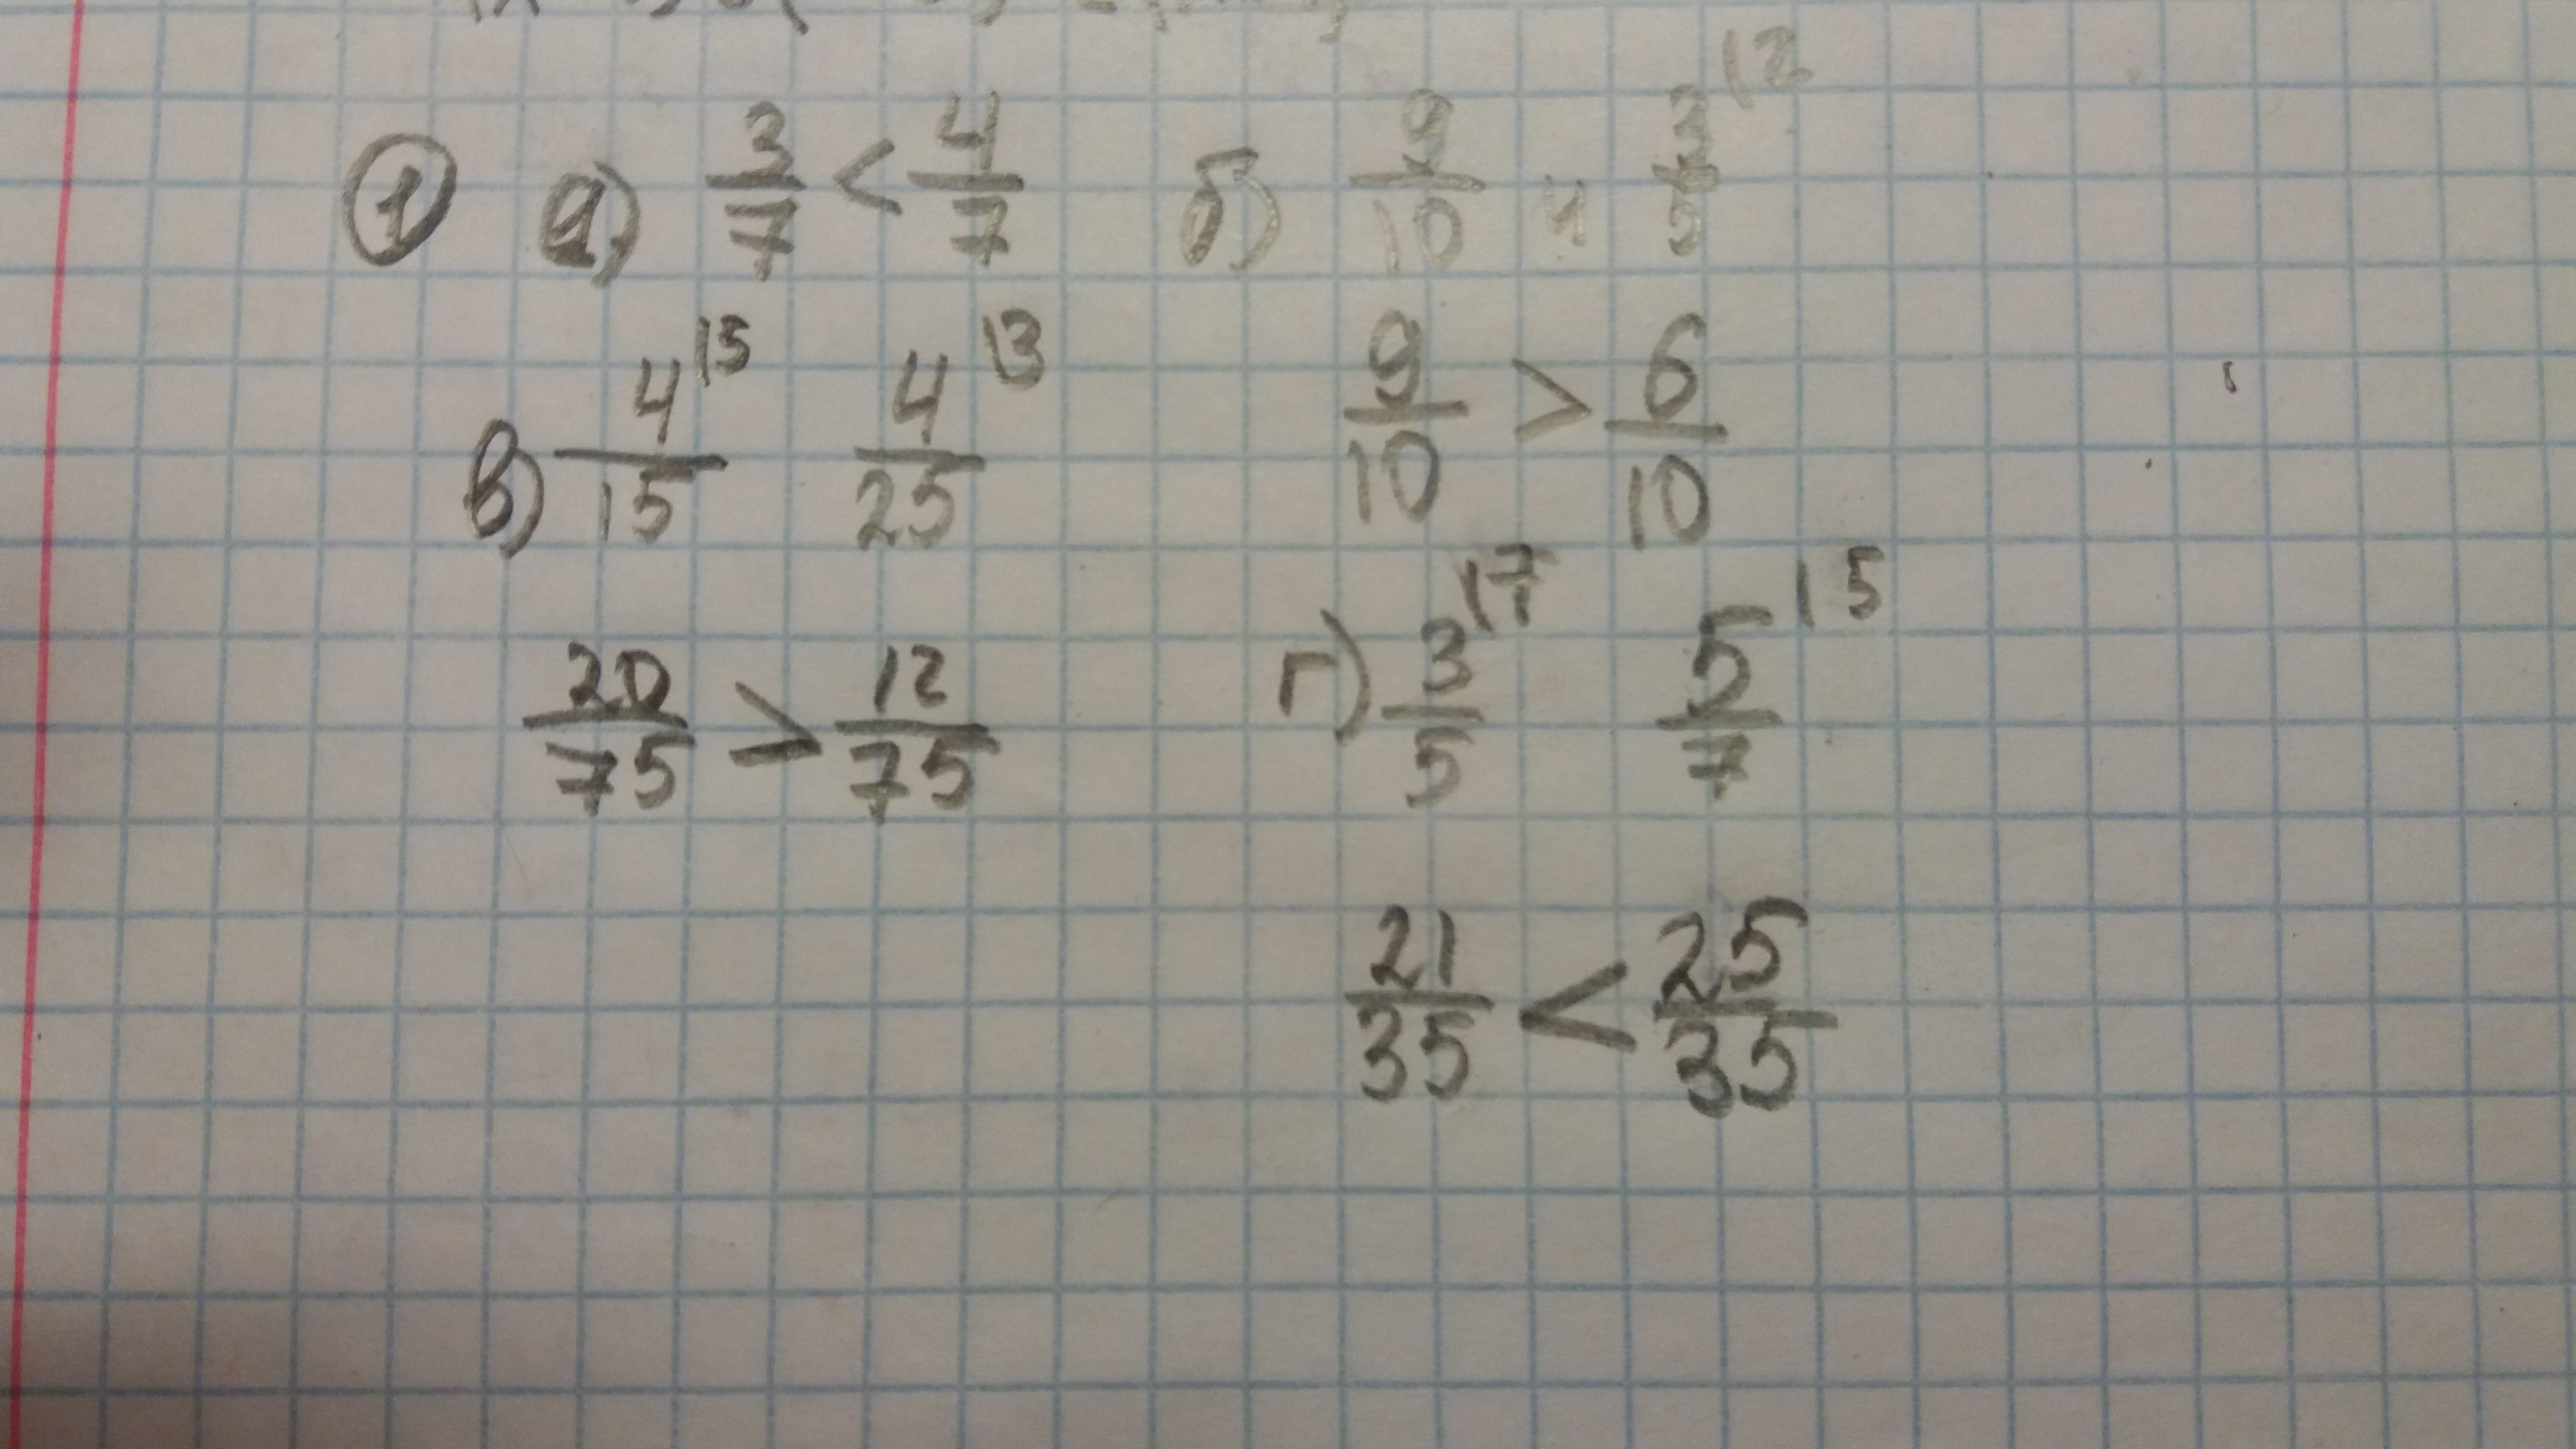 ① а) 3/7 < 4/7 б) 9/10 и 3/5 |2
в) 4/15 |5 4/25 |3
9/10 > 6/10
20/75 > 12/75
г) 3/5 |7 5/7 |5
21/35 < 25/35